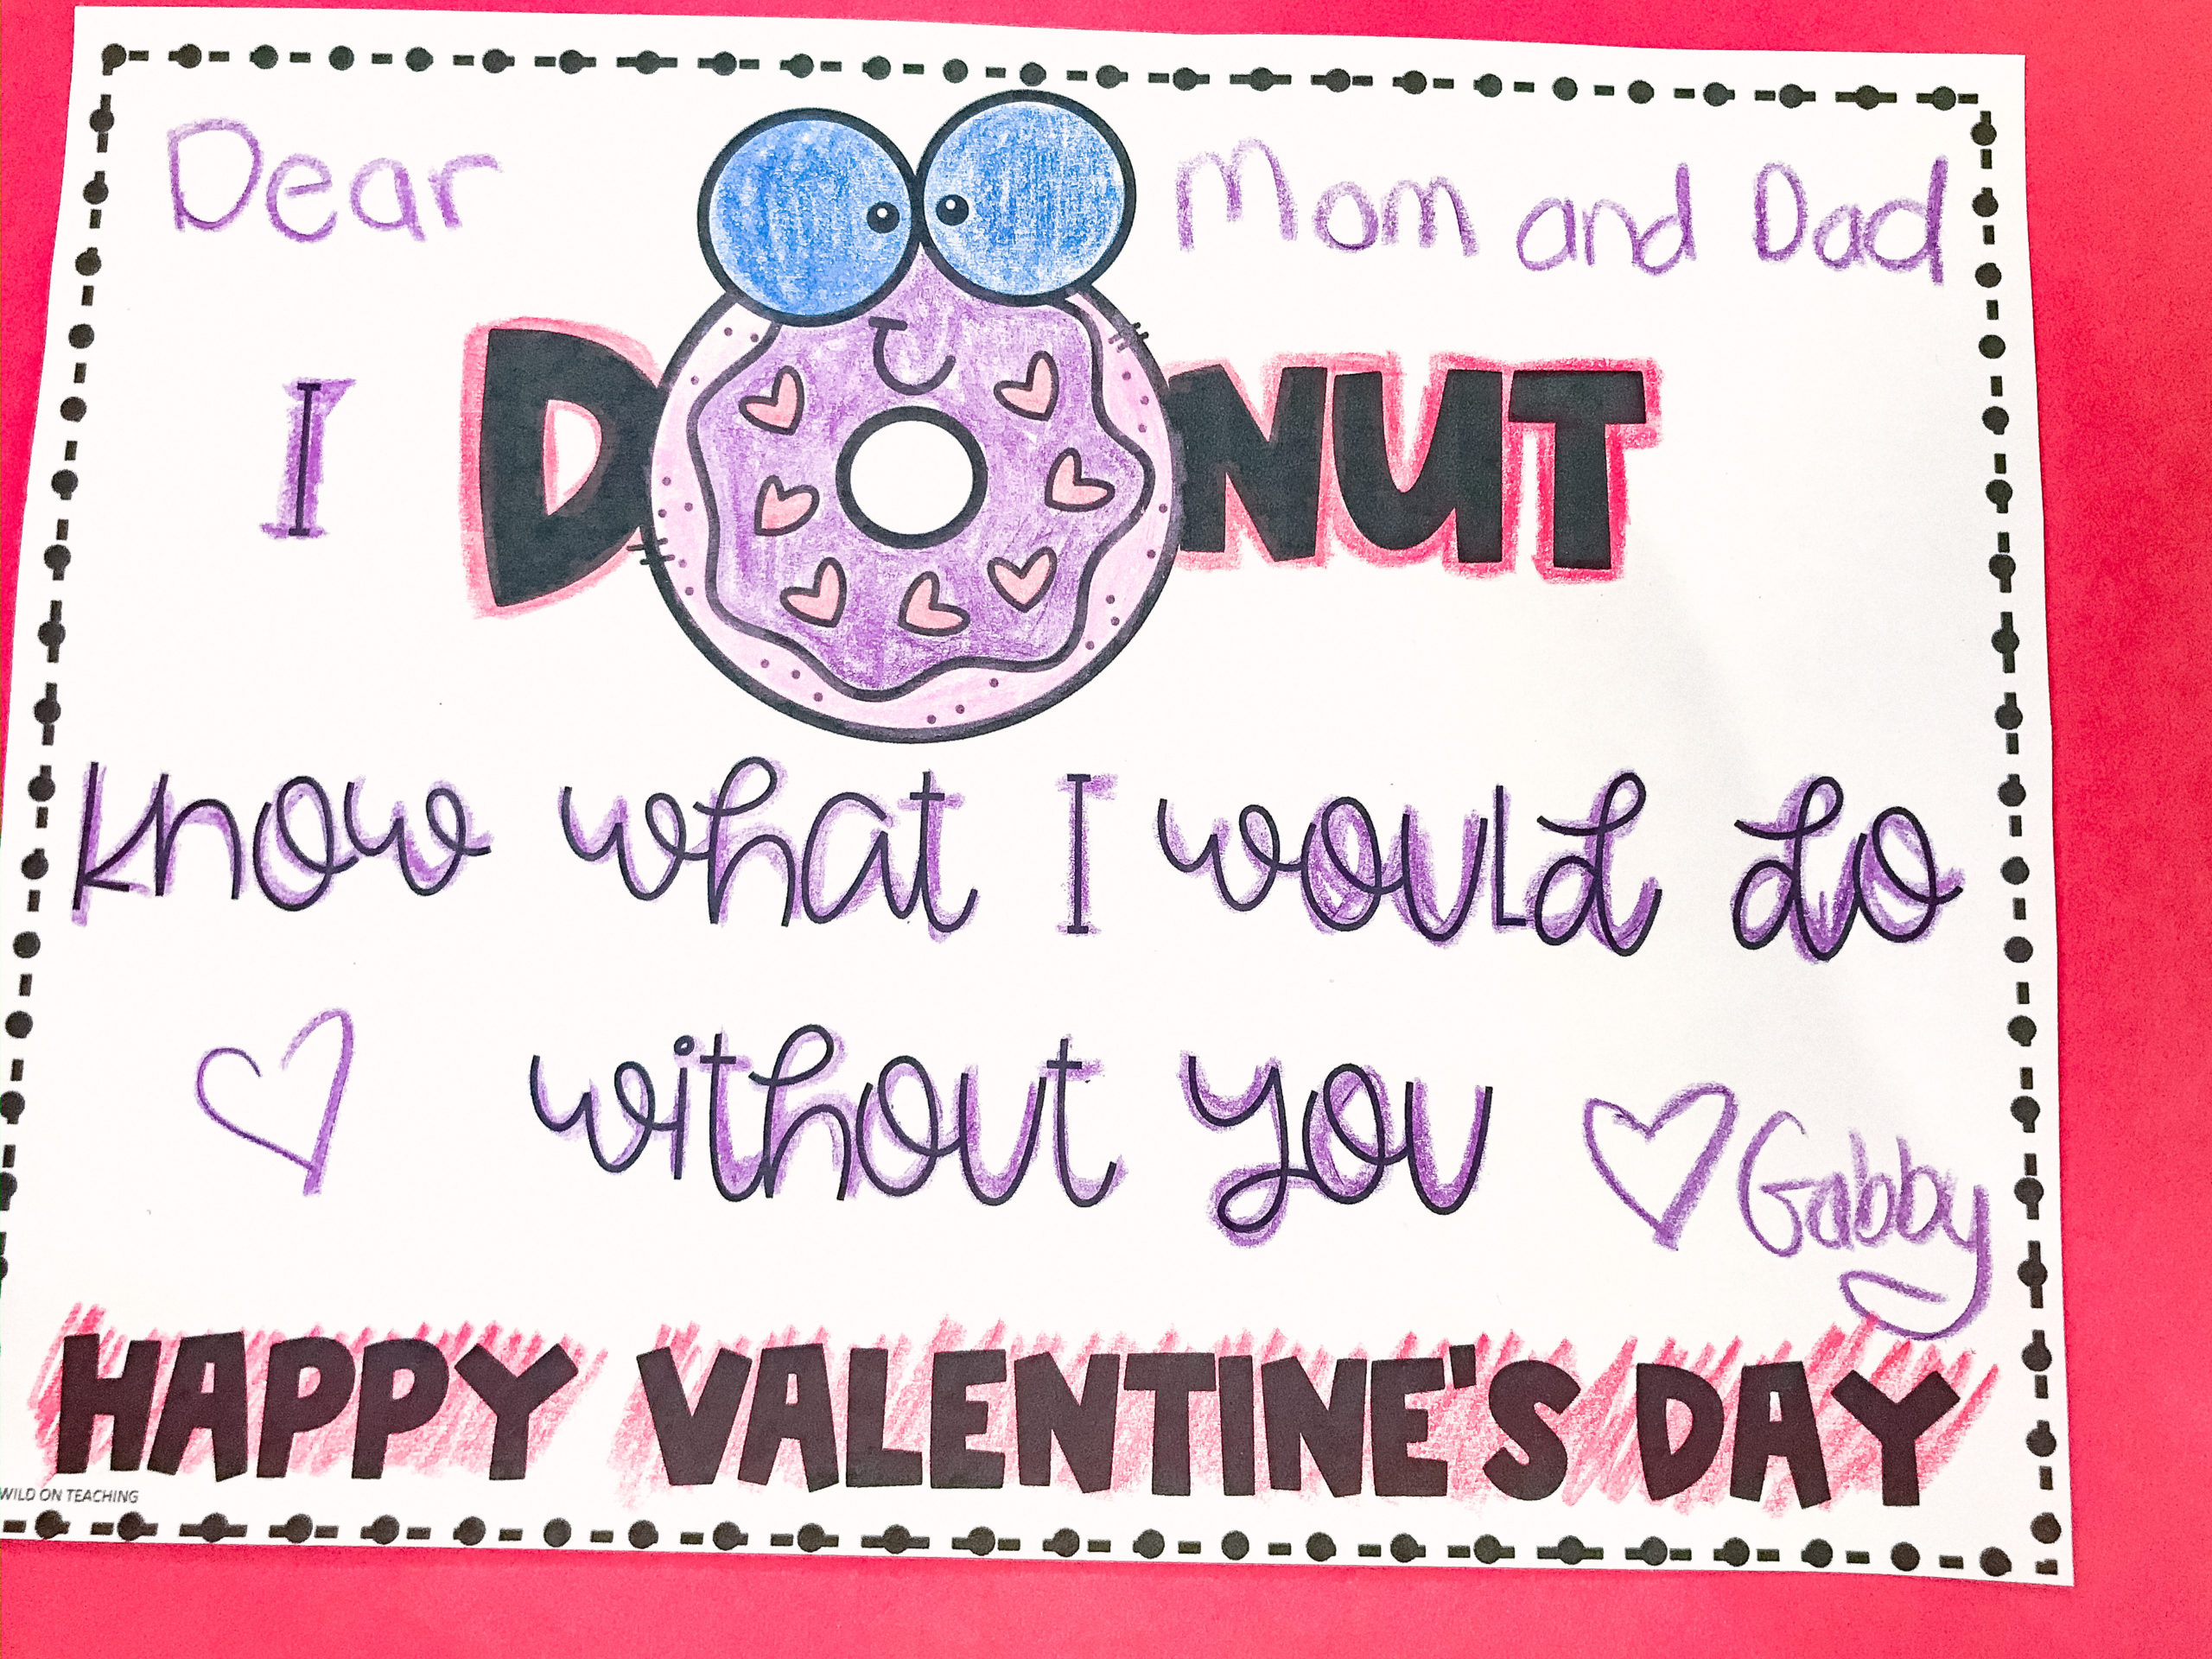 Dear Mom and Dad
I DONUT
Know what I would do
without you Gabby
HAPPY VALENTINE'S DAY
WILD ON TEACHING